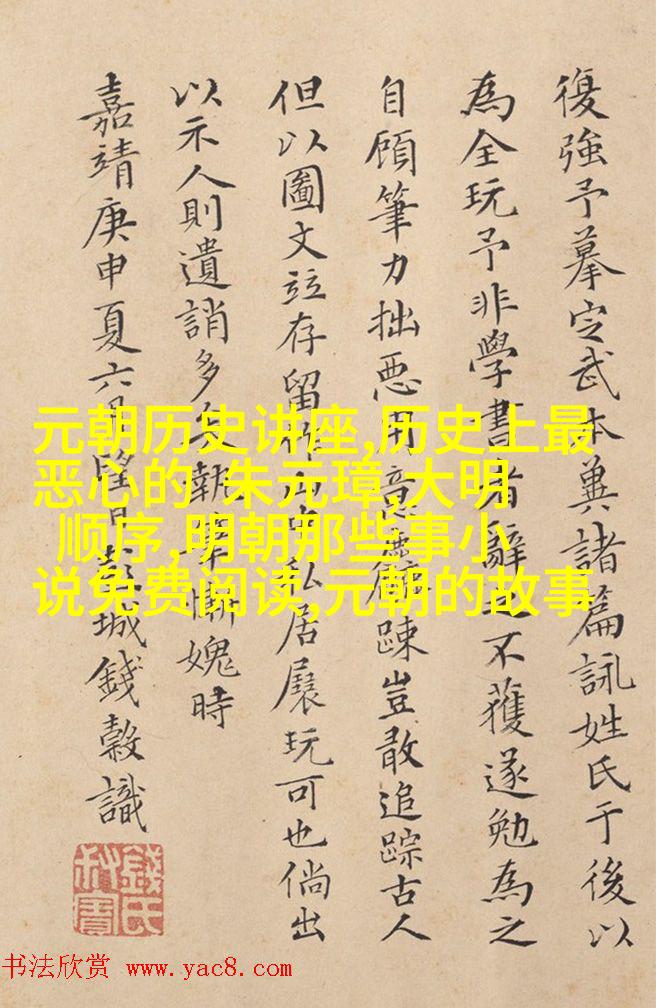 復強予摹定武本兾諸篇詠姓氏于後以
為全玩予非學書者辭之不獲遂勉為之
自顧筆力拙惡用意麤踈豈敢追踪古人
但以圖文竝存留作私居展玩可也倘出
以示人則遺誚多矣執筆慚媿時
嘉靖庚申夏六月望日彭城錢穀識
錢氏叔寶
元朝历史讲座,历史上最
恶心的 朱元璋,大明
顺序,明朝那些事小
说免费阅读,元朝的故事
书法欣赏 www.yac8.com